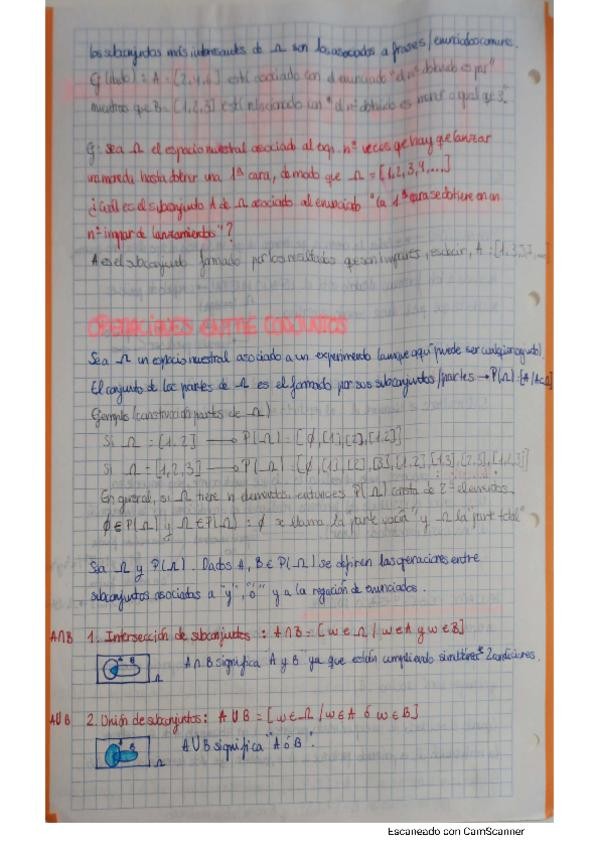 los subconjuntos más interesantes de Ω son los asociados a frases/enunciados comunes.
Ej (dado): A = [2,4,6] está asociado con el enunciado "el nº obtenido es par"
mientras que B = [1,2,3] está relacionado con "el nº obtenido es menor o igual que 3".
Ej: Sea Ω el espacio muestral asociado al exp. nº veces que hay que lanzar
una moneda hasta obtener una 1ª cara, de modo que Ω = [1,2,3,4,...]
¿Cuál es el subconjunto A de Ω asociado al enunciado "la 1ª cara se obtiene en un
nº impar de lanzamientos"?
A es el subconjunto formado por los resultados que son impares, es decir, A = [1,3,
OPERACIONES ENTRE CONJUNTOS
Sea Ω un espacio muestral asociado a un experimento (aunque aquí puede ser cualquier
El conjunto de las partes de Ω es el formado por sus subconjuntos/partes → P(Ω) = [A/A⊂Ω]
Ejemplo (construcción partes de Ω)
Si Ω = [1,2] → P(Ω) = [∅,[1],[2],[1,2]]
Si Ω = [1,2,3] → P(Ω) = [∅,[1],[2],[3],[1,2],[1,3],[2,3],[1,2,3]]
En general, si Ω tiene n elementos, entonces P(Ω) consta de 2ⁿ elementos.
∅ ∈ P(Ω) y Ω ∈ P(Ω) = ∅ se llama la "parte vacía" y Ω la "part total"
Sea Ω y P(Ω). Dados A, B ∈ P(Ω) se definen las operaciones entre
subconjuntos asociadas a "y", "ó" y a la negación de enunciados.
A∩B 1. Intersección de subconjuntos: A∩B = [ω ∈ Ω / ω ∈ A y ω ∈ B]
A B Ω A∩B significa "A y B" ya que están cumpliendo 2 condiciones.
A∪B 2. Unión de subconjuntos: A∪B = [ω ∈ Ω / ω ∈ A ó ω ∈ B]
A B Ω A∪B significa "A ó B".
Escaneado con CamScanner